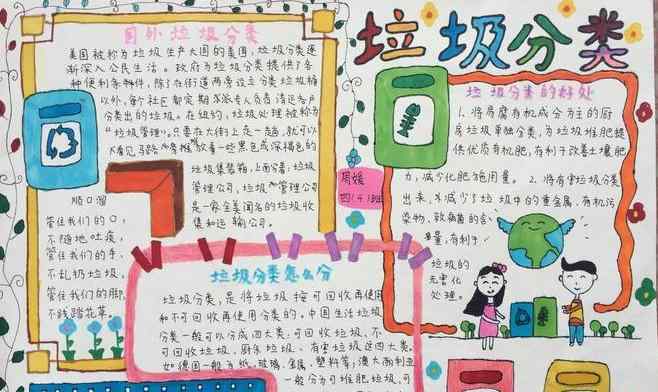 垃圾分类
国外垃圾分类
美国被称为垃圾生产大国的美国,垃圾分类逐
渐深入公民生活。政府为垃圾分类提供了各
种便利条件,除了在街道两旁设立分类垃圾桶
以外,每个社区都定期派专人负责清运各户
分类出的垃圾。在纽约,垃圾处理被称为
"垃圾管理"。只要在大街上走一走,就可以
看见马路旁放着一些黑色或深褐色的
垃圾集装箱,上面写着:垃圾
管理公司,垃圾管理公司
是一家全美闻名的垃圾收
集和运输公司。
顺口溜
管住我们的口,
不随地吐痰,
管住我们的手,
不乱扔垃圾,
管住我们的脚,
不践踏花草。
周媛
四(4)班
垃圾分类的好处
1.将易腐有机成分为主的厨
房垃圾单独分类,为垃圾堆肥提
供优质有机肥,有利于改善土壤肥
力,减少化肥施用量。2.将有害垃圾分类
出来,减少了垃圾中的重金属,有机污
染物,致病菌的含
量,有利于
垃圾的
无害化
处理。
垃圾分类怎么分
垃圾分类,是将垃圾按可回收再使用
和不可回收再使用分类的。中国生活垃圾
分类一般可以分成四大类:可回收垃圾、不
可回收垃圾、厨余垃圾、有害垃圾这四大类。
如德国一般为纸、玻璃、金属、塑料等;澳大利亚
一般分为可堆肥垃圾,可